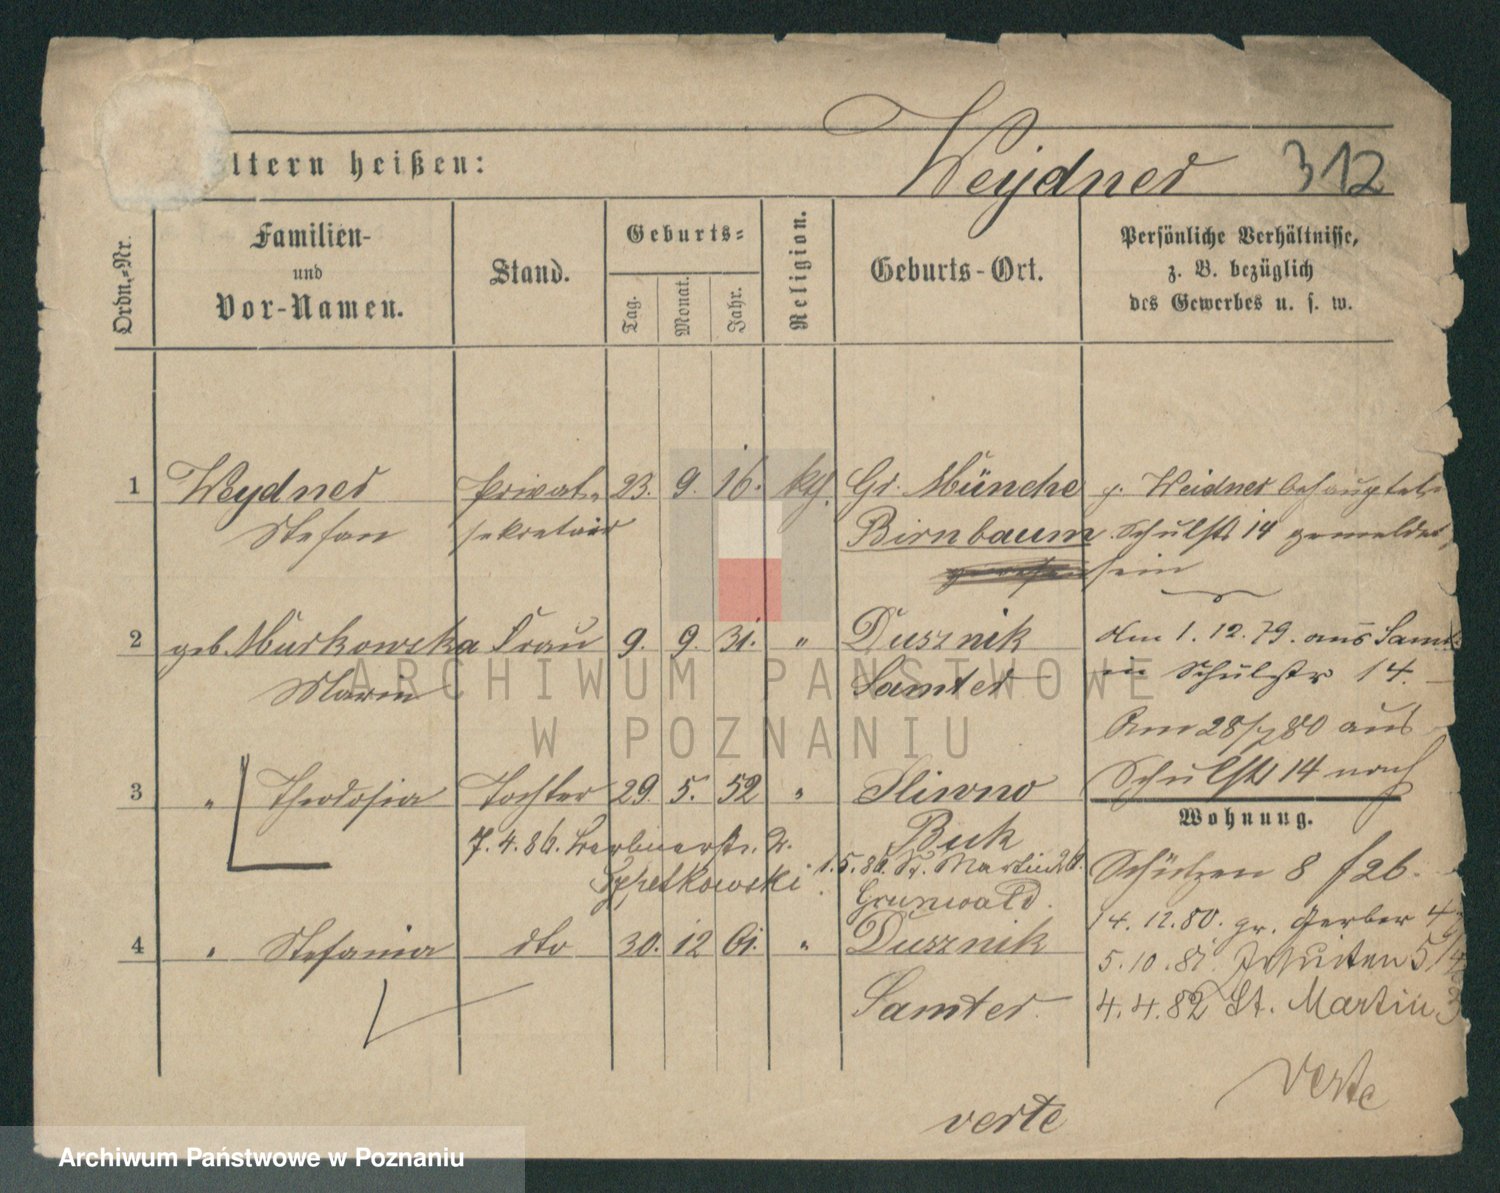 ltern heißen:
Weydner 312
Ordn.-Nr.
Familien-
und
Vor-Namen.
Stand.
Geburts-
Tag.
Monat.
Jahr.
Religion.
Geburts-Ort.
Persönliche Verhältnisse,
z. B. bezüglich
des Gewerbes u. s. w.
1 Weydner Privat- 23. 9. 16. kth. Gr. Münche p. Weidner behauptet
Stefan sekretair Birnbaum Schulstr 14 gemeldet
sein
2 geb. Murkowska Frau 9. 9. 31. " Dusznik Am 1.12.79. aus Samt
Marie Samter in Schulstr 14.
Am 28/7 80 aus
Schulstr 14 nach
3 " Theodosia Tochter 29. 5. 52 " Sliwno
Buk
Wohnung.
7.4.86.
1.5.86. St. Martin 26.
Szpetkowski
Grunwald.
Schützen 8 f 26.
14.12.80. gr. Gerber 4
5.10.81. Jesuiten 5
4.4.82 St. Martin
4 " Stefania dto 30. 12 61. " Dusznik
Samter.
verte
verte
ARCHIWUM PAŃSTWOWE
W POZNANIU
Archiwum Państwowe w Poznaniu